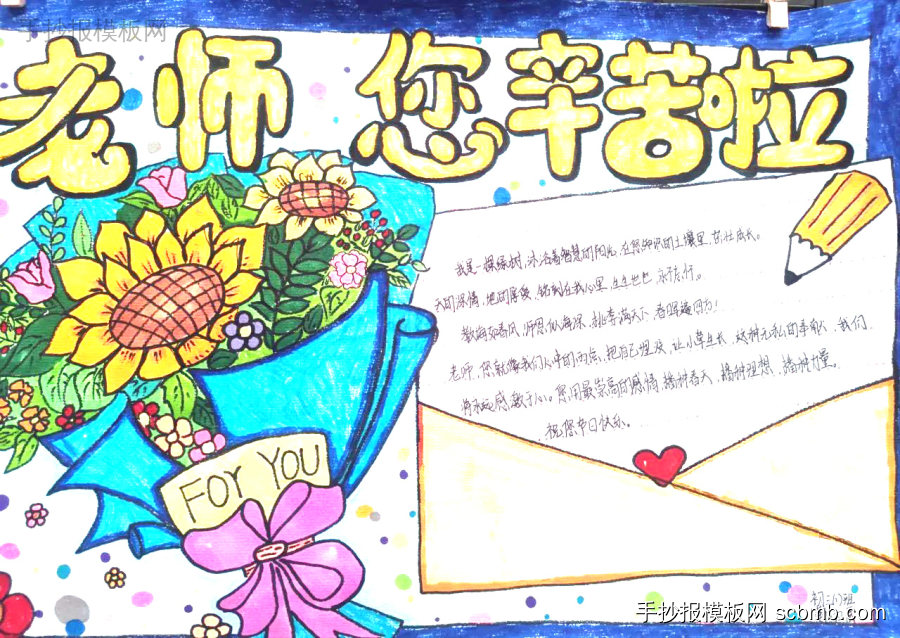 手抄报模板网
老师 您辛苦啦
我是一棵绿树,沐浴着智慧的阳光,在您知识的土壤里,茁壮成长。
天的深情,地的厚爱,铭刻在我心里,生生世世,永志怀。
教诲如春风,师恩似海深,桃李满天下,春晖遍四方!
老师,您就像我们心中的雨点,把自己埋没,让小草生长,这种无私的奉献,我们
将永远感激于心。您用最崇高的感情,播种春天、播种理想、播种力量。
祝您节日快乐。
FOR YOU
初三(1)班
手抄报模板网 scbmb.com